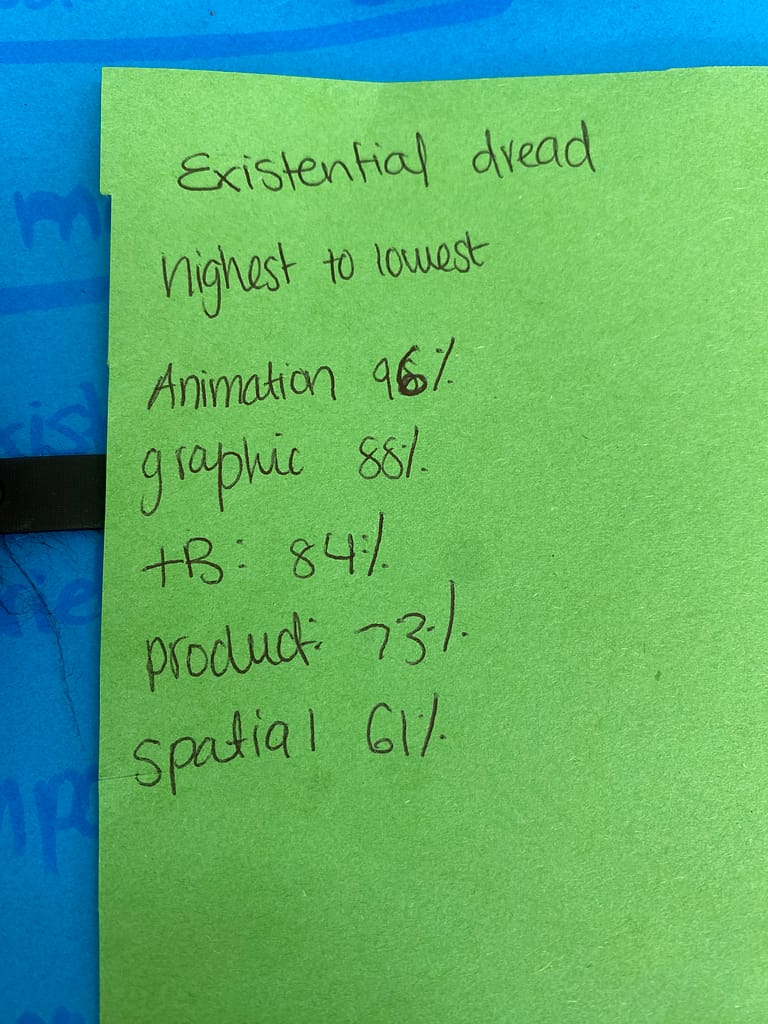 Existential dread
highest to lowest
Animation 96%
graphic 88%
+B: 84%
product: 73%
spatial 61%